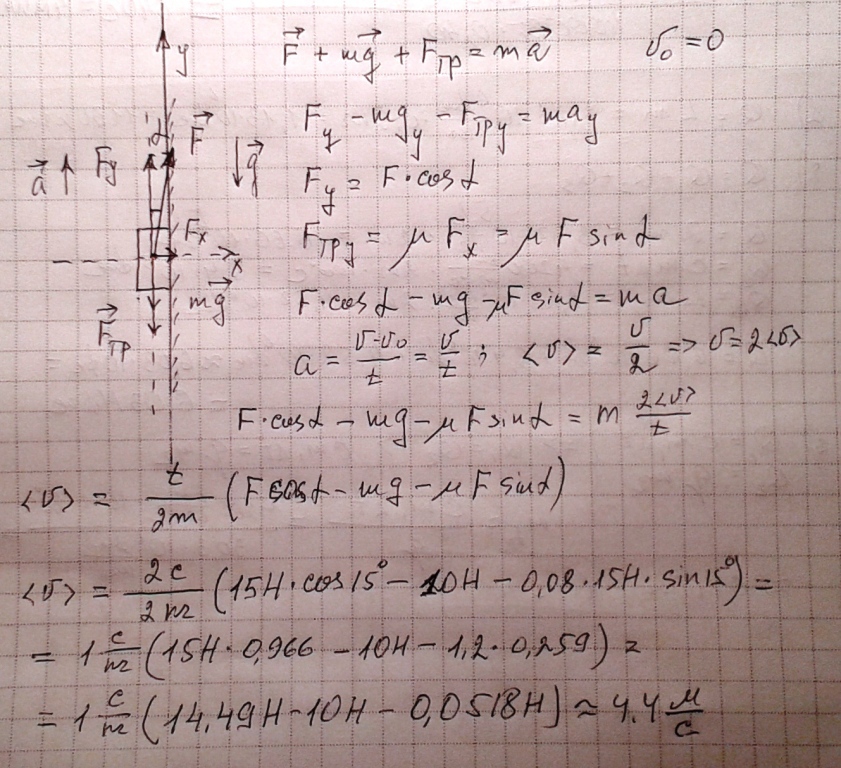 y
F⃗ + mg⃗ + Fтр = ma⃗   υ₀ = 0
α F⃗ g⃗
a⃗ Fy
Fy - mgy - Fтрy = may
Fy = F·cosα
Fx x
Fтрy = μFx = μF sinα
mg⃗
F⃗тр
F·cosα - mg - μF sinα = ma
a = (υ-υ₀)/t = υ/t ; <υ> = υ/2 => υ = 2<υ>
F·cosα - mg - μF sinα = m 2<υ>/t
<υ> = t/2m (F cosα - mg - μF sinα)
<υ> = 2c/2кг (15Н·cos15° - 10Н - 0,08·15Н·sin15°) =
= 1 c/кг (15Н·0,966 - 10Н - 1,2·0,259) =
= 1 c/кг (14,49Н - 10Н - 0,0518Н) ≈ 4,4 м/c